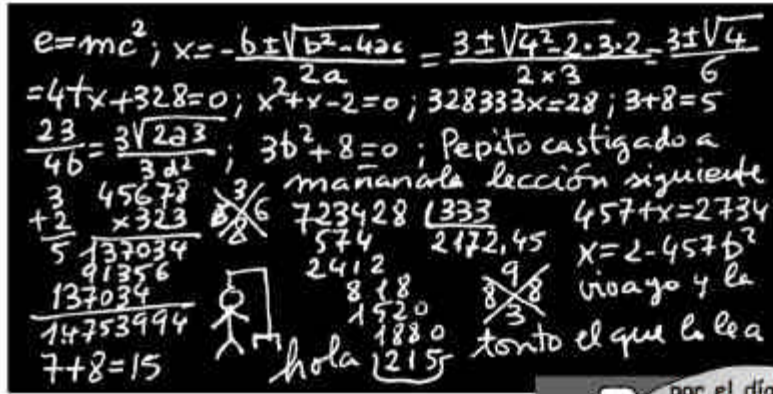 e=mc²; x=-b±√b²-4ac/2a = 3±√4²-2·3·2/2×3 = 3±√4/6
=4+x+328=0; x²+x-2=0; 328333x=28; 3+8=5
23/4b = 3√2a3/3d²; 3b²+8=0; Pepito castigado a
mañana la lección siguiente
3
+2
5
45678
×323
137034
91356
137034
14753994
7+8=15
3
6
8
723428 333
574 2172,45
2412
818
1520
1880
215
hola
9
8 8
3
457+x=2734
x=2-457b²
viva yo y la
tonto el que lo lea
por el día